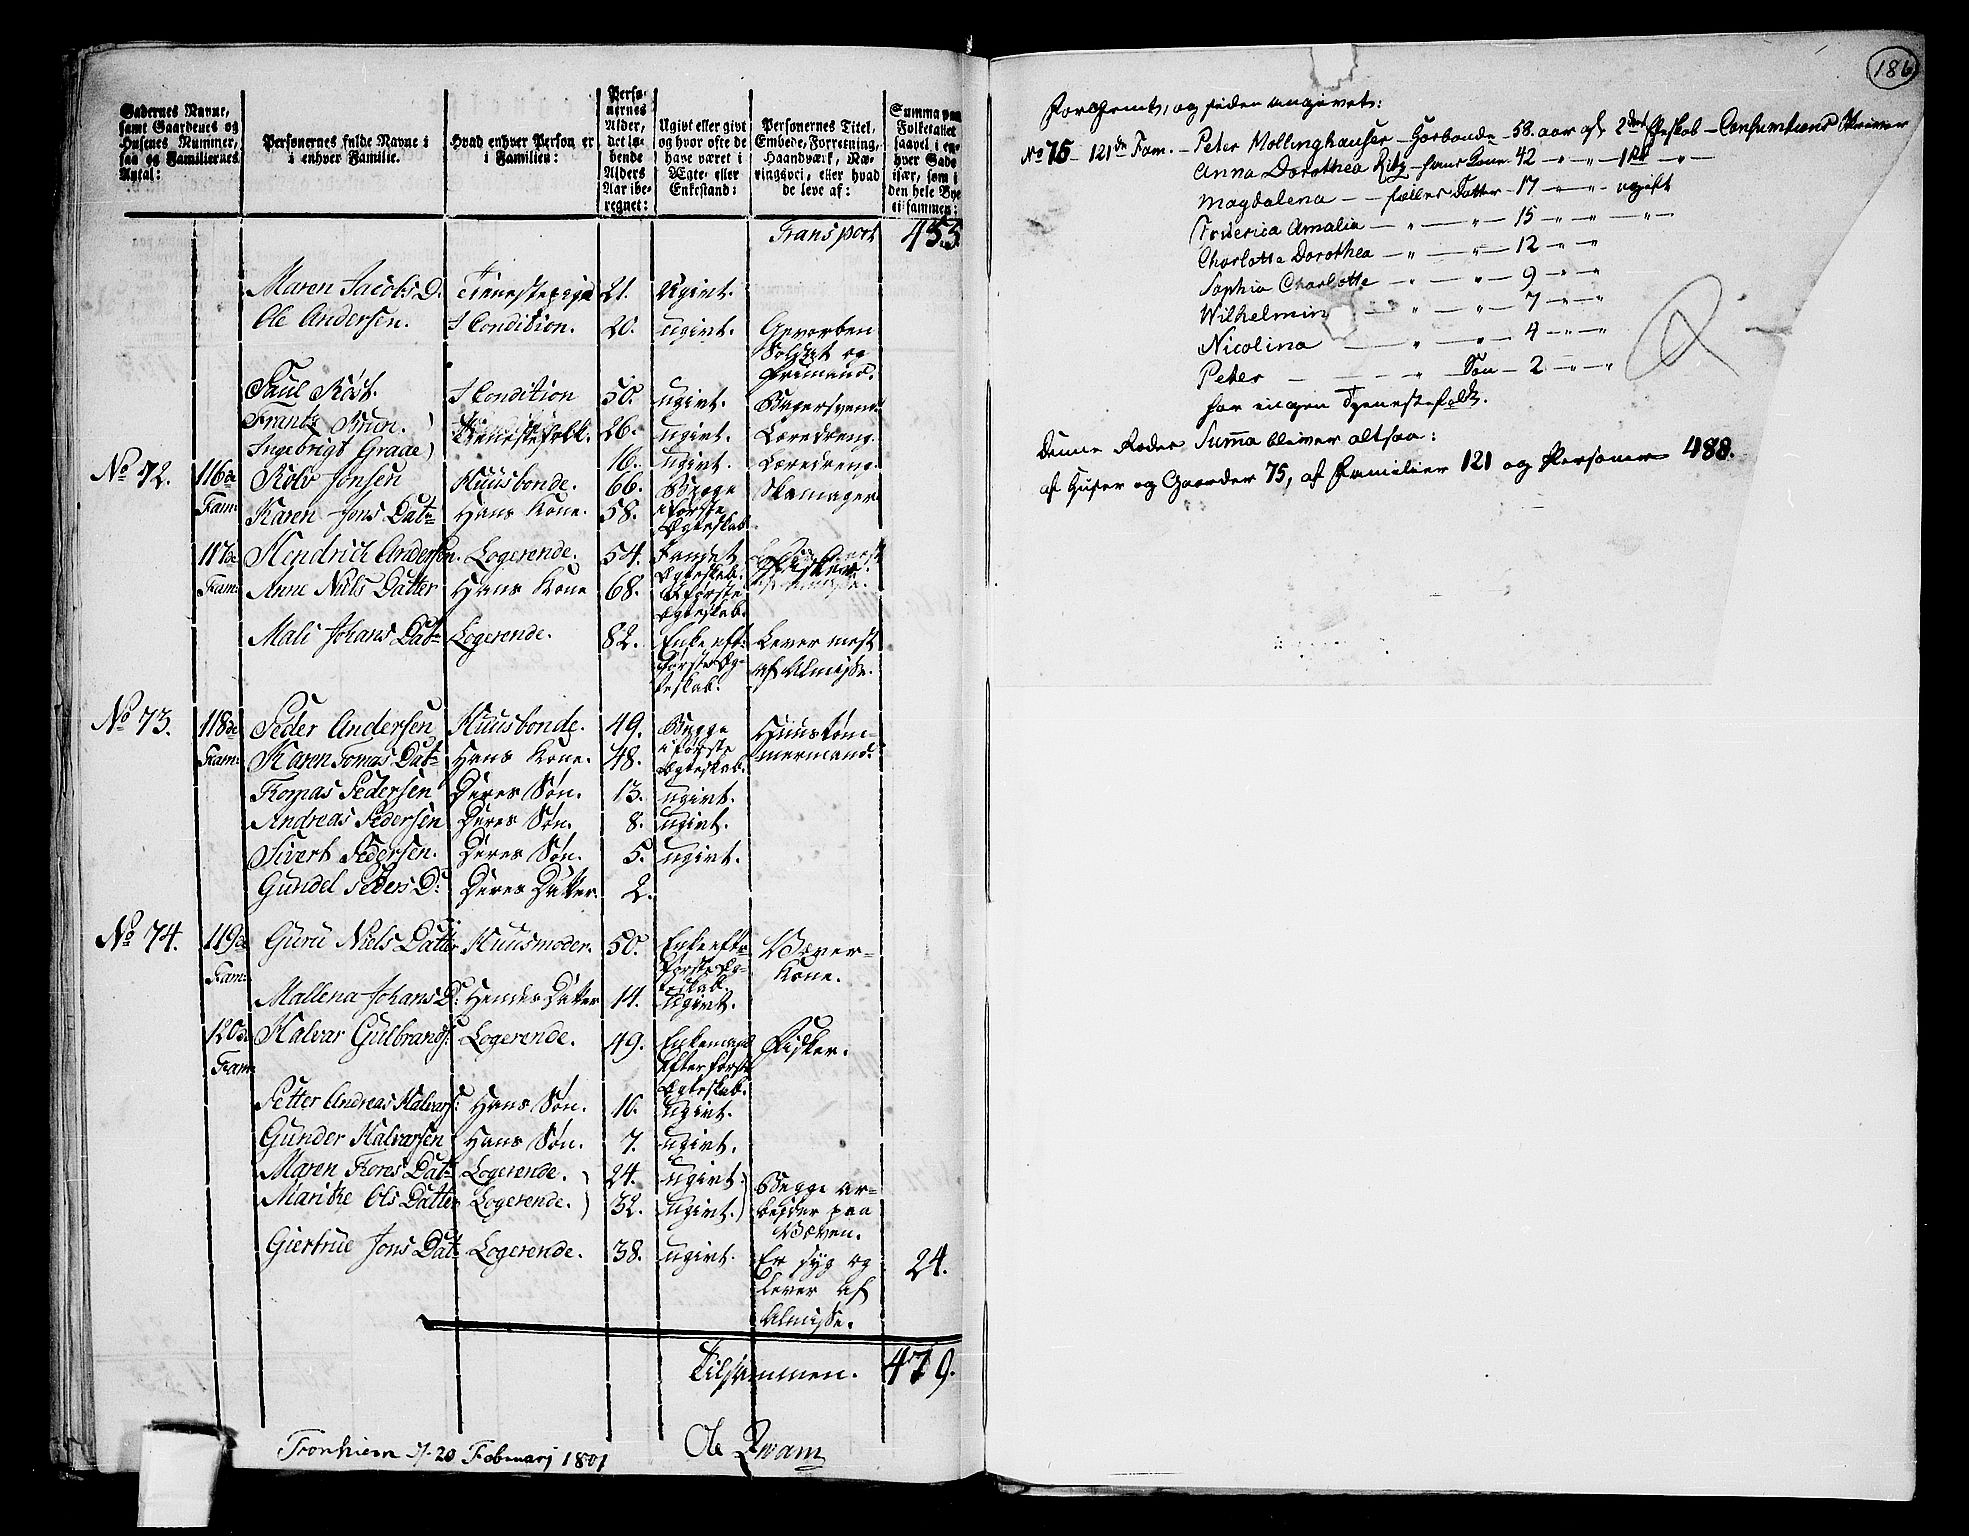 Gadernes Navne, samt Gaardenes og Husenes Nummer, saa og Familiernes Antal:
Personernes fulde Navne i enhver Familie.
Hvad enhver Person er i Familien:
Personernes Alder, det løbende Alders Aar iberegnet:
Ugivt eller givt og hvor ofte de have været i Ægte- eller Enkestand:
Personernes Titel, Embede, Forretning, Haandværk, Næringsvei, eller hvad de leve af:
Summa paa Folketallet saavel i enhver Gade især, som i den hele Bye tilsammen:
Transport 453.
Maren Jacobs D. Tienestepige 21. Ugivt.
Ole Andersen. I Condition. 20. ugivt. Gevorben Soldat og Frimand.
Paul Röst. I Condition 50. ugivt. Bagersvend.
Frantz Brun. ) Tienestefolk. 26. ugivt. Læredreng.
Ingebrigt Graae ) 16. ugivt. Læredreng.
No 72. 116de Fam: Rolv Jonsen Huusbonde. 66. Begge i første Ægteskab. Skomager
Karen Jons Datr Hans Kone. 58.
117de Fam: Hendrich Andersen. Logerende. 54. I andet Ægteskab. Fisker.
Anne Niels Datter Hans Kone 68. I første Ægteskab.
Mali Johans Datr Logerende. 82. Enke eft: første Ægteskab. Lever mest af Almisse.
No 73. 118de Fam: Peder Andersen Huusbonde. 49. Begge i første Ægteskab. Huustømmermand.
Karen Tomas Datr Hans Kone. 48.
Thomas Pedersen Deres Søn. 13. ugivt.
Andreas Pedersen Deres Søn. 8. ugivt.
Sivert Pedersen. Deres Søn. 5. ugivt.
Gundel Peders D: Deres Datter. 2.
No 74. 119de Fam: Guru Niels Datter Huusmoder. 50. Enke eftr første Ægteskab. Væverkone.
Mallena Johans D: Hendes Datter 14. ugivt.
120de Fam: Halvar Gulbrands: Logerende. 49. Enkemand efter første Ægteskab. Fisker.
Petter Andreas Halvars: Hans Søn. 10. ugivt.
Gunder Halvarsen Hans Søn. 7. ugivt.
Maren Tores Datr Logerende. ) 24. ugivt.) Begge arbeyder paa Væven.
Marithe Ols Datter Logerende. ) 32. ugivt.)
Giertrue Jons Datr Logerende. 38. ugivt. Er syg og lever af Almisse. 24.
Tilsammen. 479.
Tronhiem d. 20 Februarj 1801
Ole Qvam
186
Forglemt, og siden angivet:
No 75 - 121de Fam. - Peter Mollinghauser - Gosbonde - 58. aar af 2det Ægteskab - Consumtions Skriver
Anna Dorothea Ritz - hans Kone 42 - " - " - 1ste - " -
Magdalena - - fælles Datter - 17 - " - " - ugift
Friderica Amalia - " - " - 15 - " - " - " -
Charlotte Dorothea - " - " - 12 - " - " -
Sophia Charlotte - " - " - 9 - " - " -
Wilhelmin - " - " - 7 - " - " -
Nicolina - " - " - 4 - " - " -
Peter - - - " - Søn - 2 - " - " -
har ingen Tjenestefolk.
Denne Rodes Summa bliver altsaa:
af Huser og Gaarder 75, af Familier 121 og Personer 488.